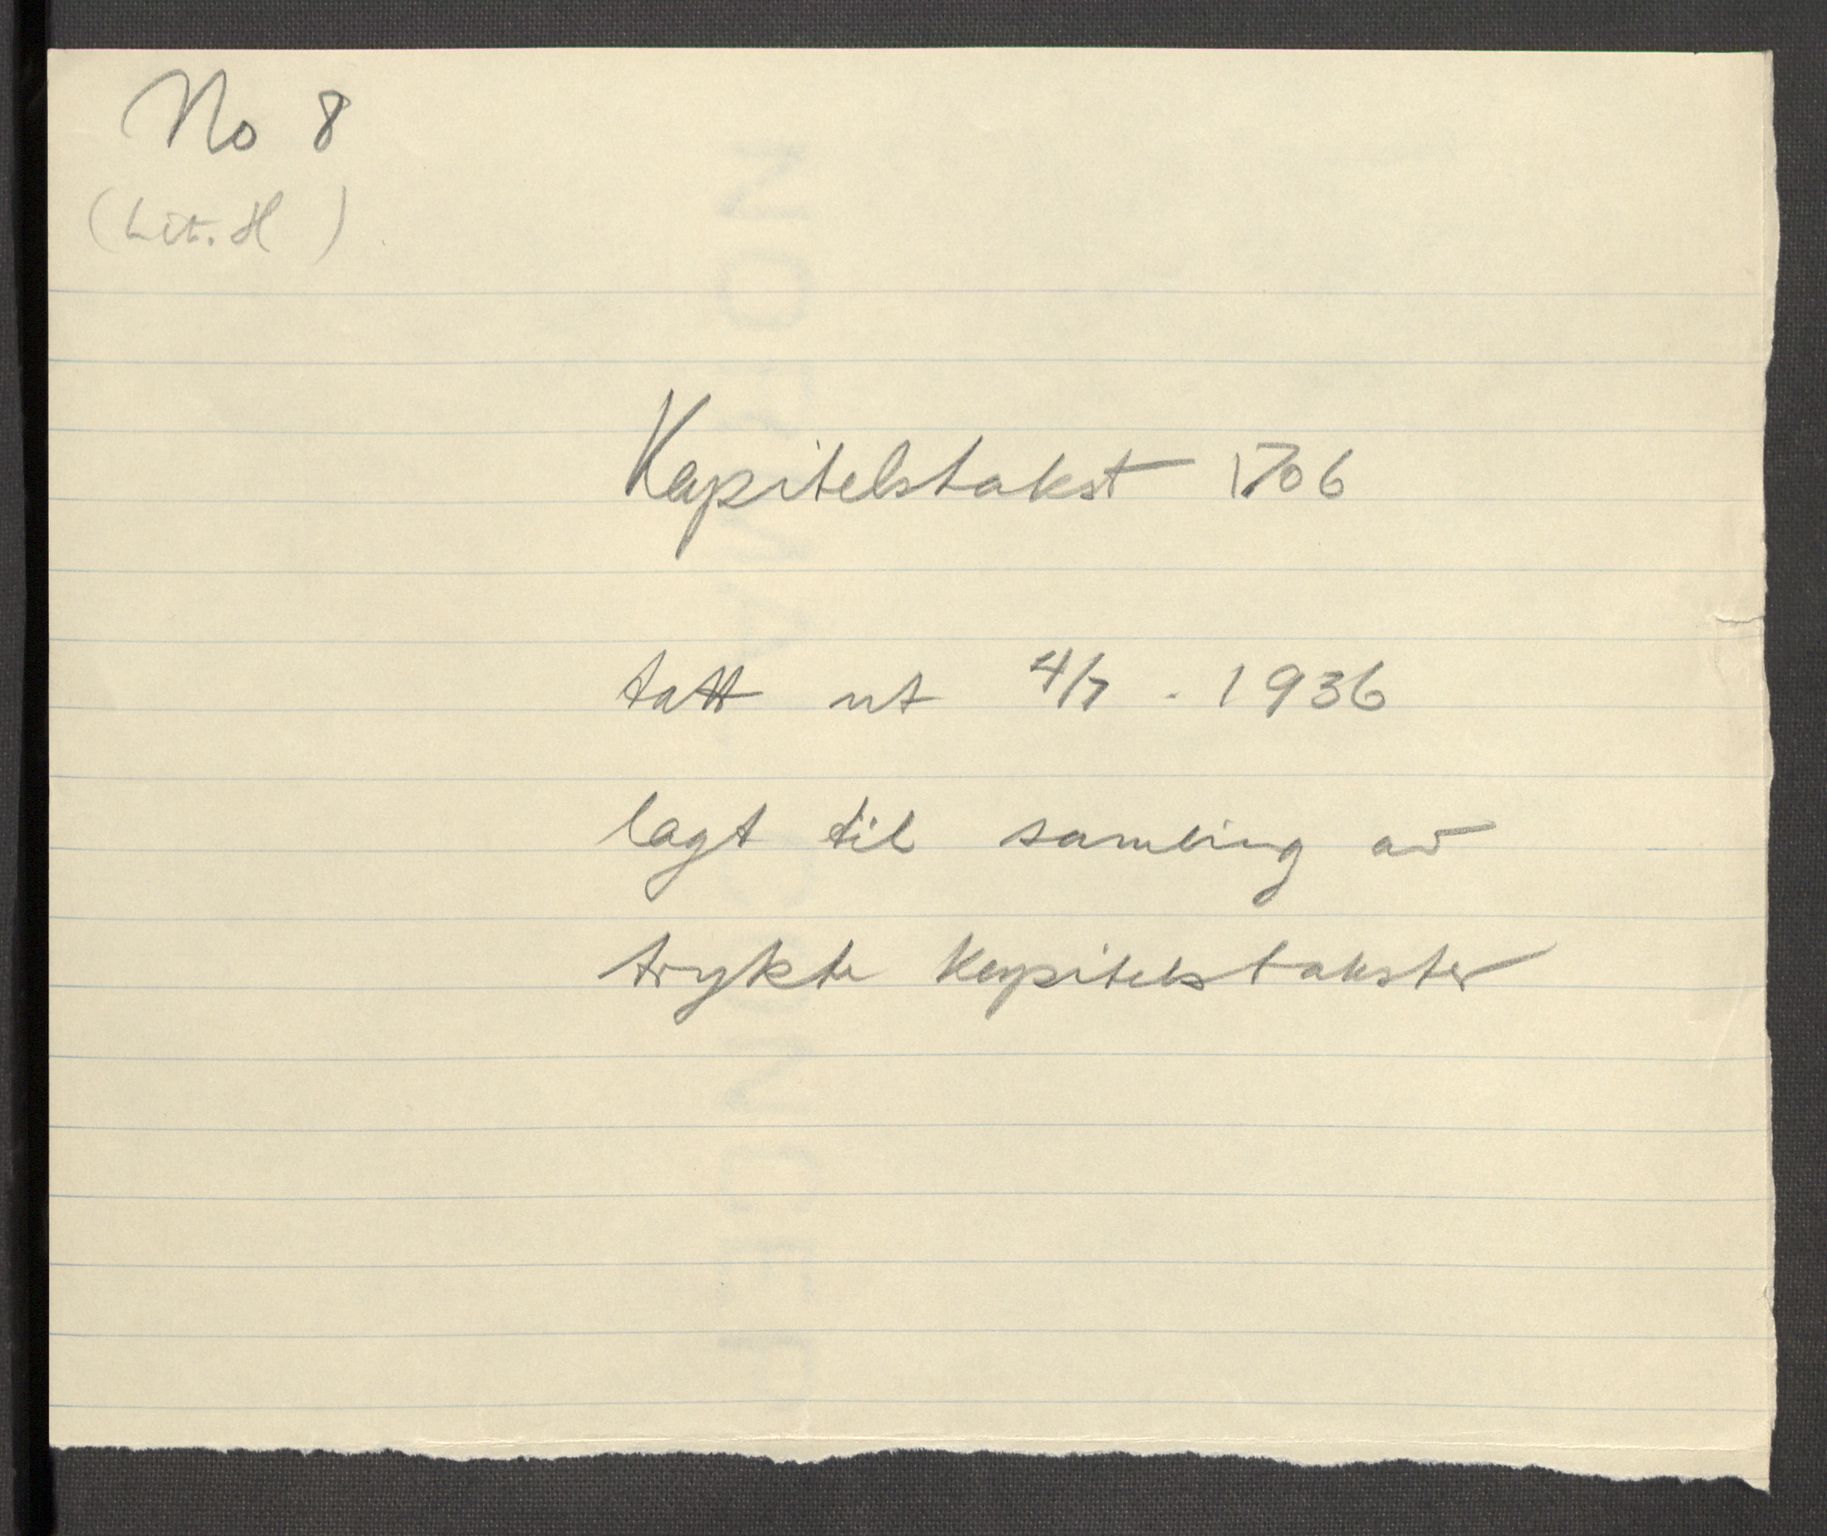 No 8
(Lit. H )
Kapitelstakst 1706
tatt ut 4/7 . 1936
lagt til samling av
trykte kapitelstakster